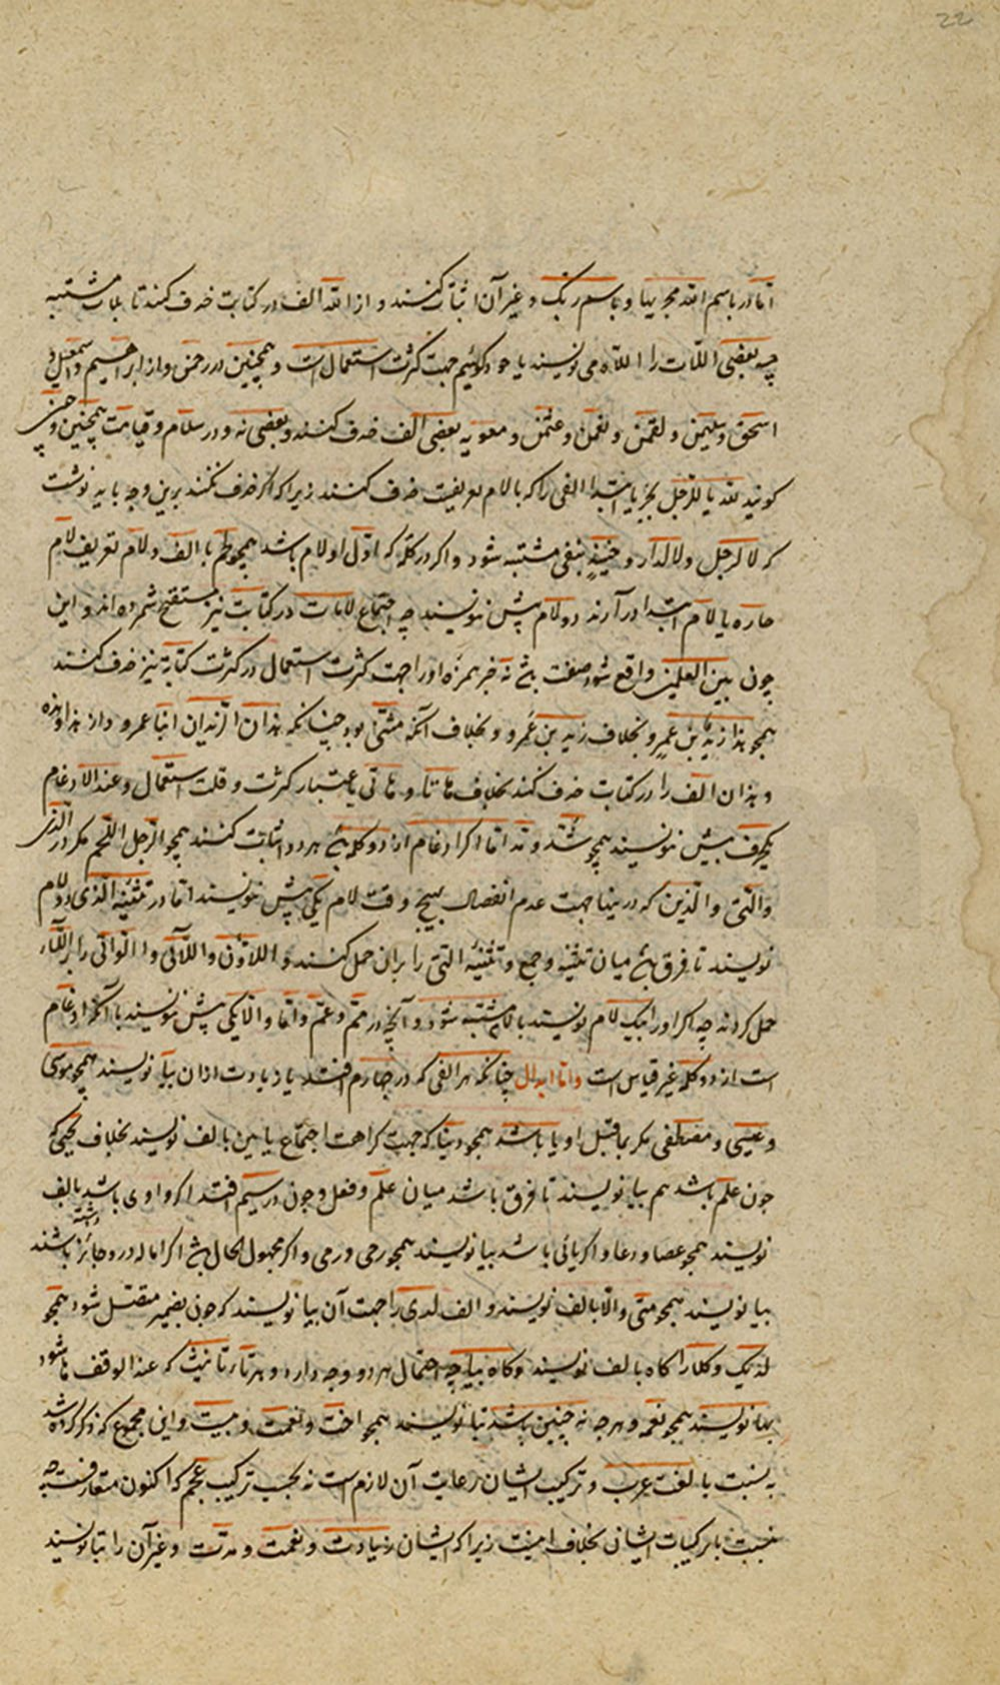 22
اما در باسم الله مجریها و باسم ربک و غیر آن اثبات کنند و از الله الف در کتابت حذف کنند تا بلات مشتبه
چه بعضی اللات را اللاه می نویسند یا خود گوئیم جهت کثرت استعمال است و همچنین در رحمن و از ابرهیم و اسمعیل و
اسحق و سلیمن و لقمن و نعمن و عثمن و معویه بعضی الف حذف کنند و بعضی نه و در سلام و قیامت همچنین و چون
گویند لله یا للرجل بجر یا ابتدا الفی را که با لام تعریفست حذف کنند زیرا که اگر حذف نکنند برین وجه باید نوشت
که لا لرجل و لا لدار و حینئذ بنفی مشتبه شود و اگر در کلمه که اول او لام باشد همچو لحم با الف و لام تعریف لام
جاره یا لام ابتدا در آرند دو لام بیش ننویسند چه اجتماع لامات در کتابت نیز مستقبح شمرده اند و ابن
چون بین العلمین واقع شود صفت باشد نه خبر همزه او را جهت کثرت استعمال در کثرت کتابة نیز حذف کنند
همچو هذا زید بن عمرو بخلاف زید بن عمرو و بخلاف آنکه مثنی بود چنانکه هذان الزیدان ابنا عمرو و از هذا و هذه
و هذان الف را در کتابت حذف کنند بخلاف هاتا و هاتی باعتبار کثرت و قلت استعمال و عند الادغام
یکحرف بیش ننویسند همچو شد و مد اما اگر ادغام از دو کلمه باشد هر دو اثبات کنند همچو الرجل اللحم مگر در الذی
و التی و الذین که در اینها جهت عدم انفصال بهیچ وقت لام یکی بیش ننویسند اما در تثنیه الذی دو لام
نویسند تا فرق باشد میان تثنیه و جمع و تثنیه التی را بران حمل کنند و اللاؤن و اللائی و اللواتی را بر اللاء
حمل کردند چه اگر او را بیک لام نویسند بالا مشتبه شود و آنچه در مم و عم و اما و الا یکی بیش ننویسند با آنکه ادغام
است از دو کلمه غیر قیاس است و اما ابدال چنانکه هر الفی که در چهارم افتد یا زیادت ازان بیا نویسند همچو موسی
و عیسی و مصطفی مگر ماقبل او یا باشد همچو دنیا که جهت کراهت اجتماع یایین بالف نویسند بخلاف یحیی که
چون علم باشد هم بیا نویسند تا فرق باشد میان علم و فعل و چون در سیم افتد اگر واوی باشد بالف
نویسند همچو عصا و دعا و اگر یائی باشد بیا نویسند همچو رحی و رمی و اگر مجهول الحال باشد اگر اماله درو جائز داشته باشند
بیا نویسند همچو متی و الا بالف نویسند و الف لدی را جهت آن بیا نویسند که چون بضمیر متصل شود همچو
لدیک و کلا را گاه بالف نویسند و گاه بیا چه احتمال هر دو وجه دارد و هر تاء تانیث که عند الوقف ها شود
بها نویسند همچو نعمه و هرچه نه چنین باشد بتا نویسند همچو اخت و نعمت و بیت و این مجموع که ذکر کرده شد
به نسبت با لغت عرب و ترکیب ایشان رعایت آن لازم است نه بحسب ترکیب عجم که اکنون متعارفست چه
نسبت با ترکیبات ایشان بخلاف اینست زیرا که ایشان زیادت و نعمت و مدت و غیر آن را بتا نویسند